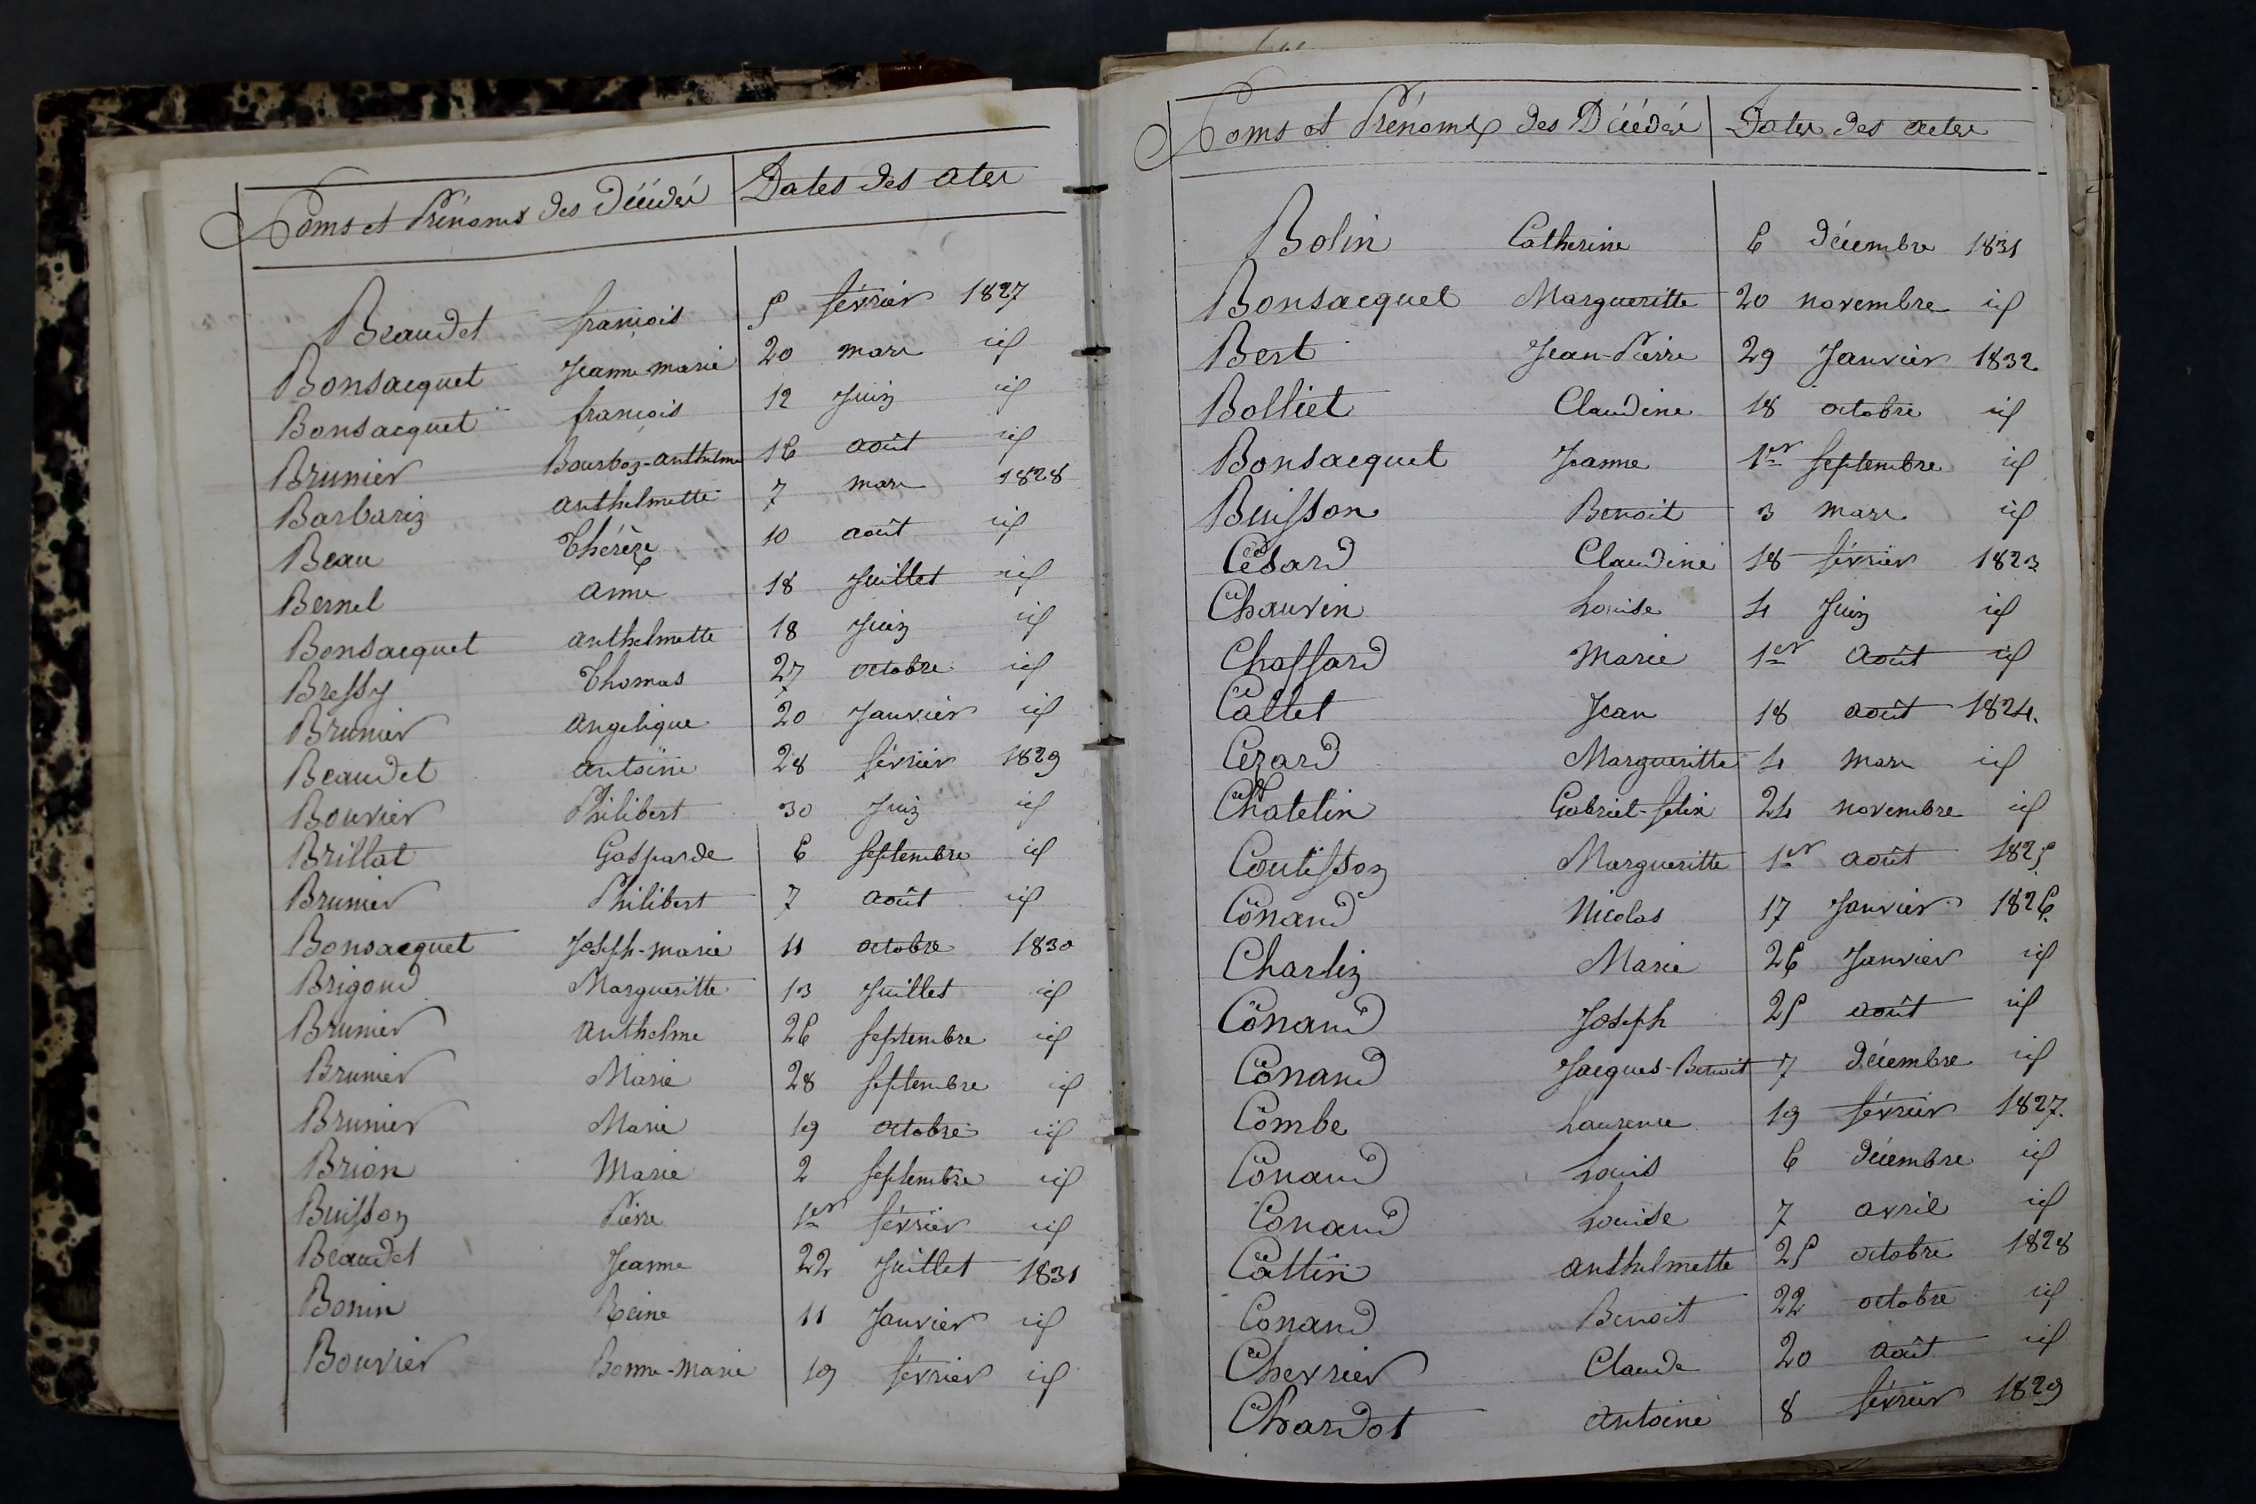 Noms et Prénoms des Décédés Dates des actes
Beaudet françois 5 février 1827
Bonsacquet Jeanne-marie 20 mars id
Bonsacquet françois 12 Juin id
Brunier Bourbon-anthelme 16 août id
Barbarin anthelmette 7 mars 1828
Beau Thérèze 10 août id
Bernel anne 18 Juillet id
Bonsacquet anthelmette 18 Juin id
Bressy Thomas 27 octobre id
Brunier angelique 20 Janvier id
Beaudet antoine 28 février 1829
Bouvier Philibert 30 Juin id
Brillat Gasparde 6 septembre id
Brunier Philibert 7 août id
Bonsacquet Joseph-marie 11 octobre 1830
Brigoud Margueritte 13 Juillet id
Brunier anthelme 26 septembre id
Brunier Marie 28 septembre id
Brunier Marie 19 octobre id
Brion Marie 2 septembre id
Buisson Pierre 1er février id
Beaudet Jeanne 22 Juillet 1831
Bonin Reine 11 Janvier id
Bouvier Bonne-Marie 19 février id
Noms et Prénoms des Décédés Dates des actes
Bolin Catherine 6 décembre 1831
Bonsacquet Margueritte 20 novembre id
Bert Jean-Pierre 29 Janvier 1832
Bolliet Claudine 18 octobre id
Bonsacquet Jeanne 1er septembre id
Buisson Benoit 3 mars id
Césard Claudine 18 février 1823
Chauvin Louise 4 Juin id
Chaffard Marie 1er août id
Callet Jean 18 août 1824.
Cezard Margueritte 4 mars id
Chatelin Gabriel-felix 24 novembre id
Coutisson Margueritte 1er août 1825.
Conand Nicolas 17 Janvier 1826.
Charlin Marie 26 Janvier id
Conand Joseph 25 août id
Conand Jacques-Benoit 7 décembre id
Combe Laurence 19 février 1827.
Conand Louis 6 décembre id
Conand Louise 7 avril id
Cattin anthelmette 25 octobre 1828
Conand Benoit 22 octobre id
Chevrier Claude 20 août id
Chardot antoine 8 février 1829